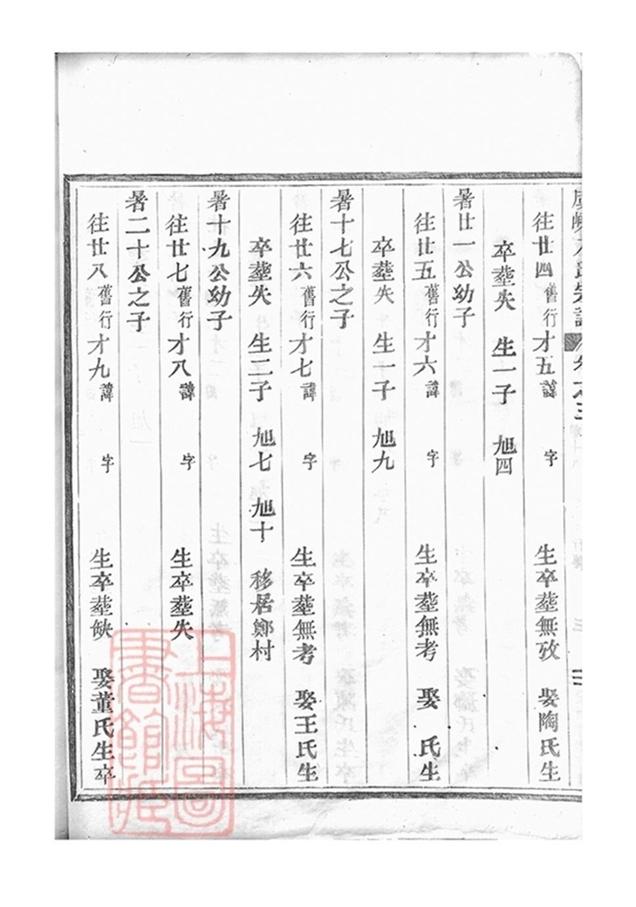 氏宗譜 卷之三
往廿四舊行才五諱 字 生卒塟無攷 娶陶氏生
卒塟失 生一子 旭四
暑廿一公幼子
往廿五舊行才六諱 字 生卒塟無考 娶 氏生
卒塟失 生一子 旭九
暑十七公之子
往廿六舊行才七諱 字 生卒塟無考 娶王氏生
卒塟失 生二子 旭七 旭十 移居鄭村
暑十九公幼子
往廿七舊行才八諱 字 生卒塟失
暑二十公之子
往廿八舊行才九諱 字 生卒塟缺 娶董氏生卒
上海圖書館藏